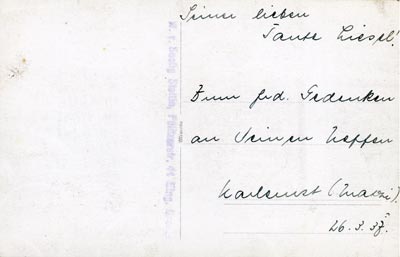 Seiner lieben
Tante Liesel!
Zum frd. Gedenken
an Deinen Neffen
Karlernst (Maxi).
26.3.37.